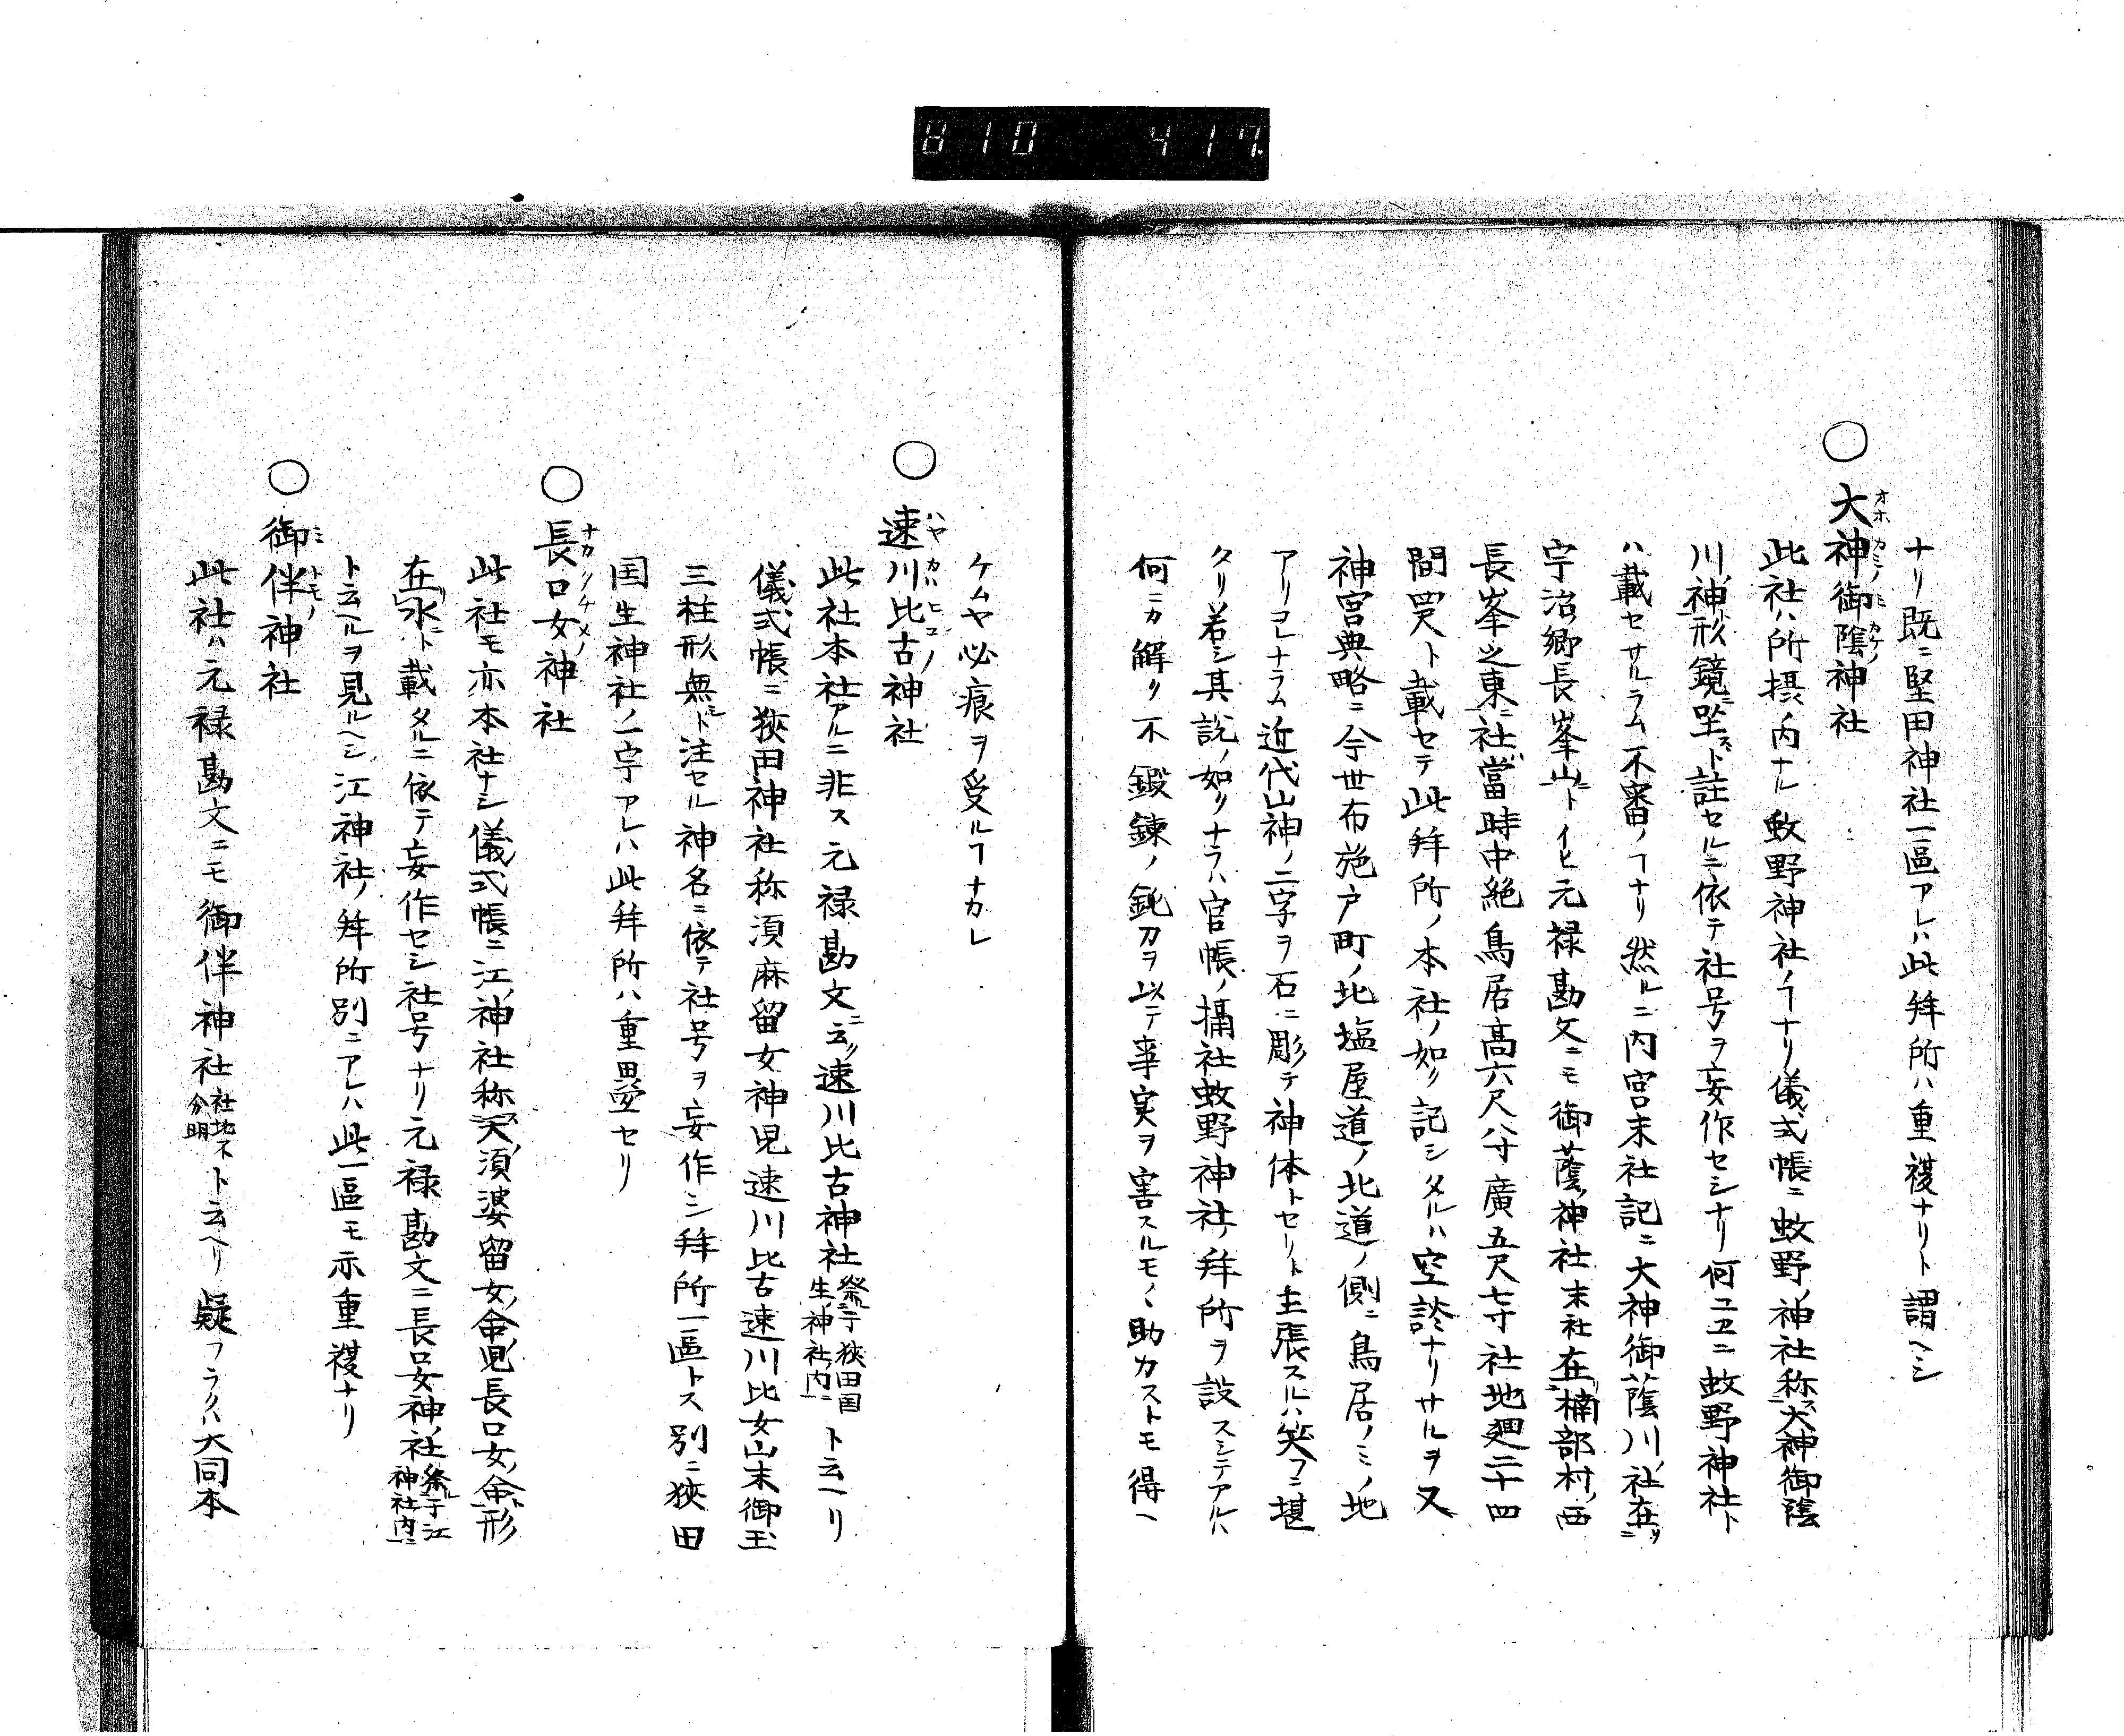 810 417.
ナリ既ニ堅田神社一區アレハ此拜所ハ重複ナリト謂ヘシ
○大神御蔭神社
オホカミノミカケノ
此社ハ所摂ノ内ナル蚊野神社ノヿナリ儀式帳ニ蚊野ノ神社称ス大神御蔭
川ノ神ト形鏡ニ坐スト註セルニ依テ社号ヲ妄作セシナリ何ニ蚊野神社ト
ハ載セサルラム不審ノヿナリ然ルニ内宮末社記ニ大神御蔭川ノ社在リ
宇治郷長峯山ニトイヒ元禄勘文ニモ御蔭ノ神社末社在楠部村ノ西
長峯之東ニ社當時中絶鳥居高六尺八寸廣五尺七寸社地廻二十四
間四尺ト載セテ此拜所ノ本社ノ如ク記シタルハ空談ナリサルヲ又
神宮典略ニ今世布施戸町ノ北塩屋道ノ北道ノ側ニ鳥居ノミノ地
アリコレナラム近代山神ノ二字ヲ石ニ彫テ神体トセリト主張スルハ笑フニ堪
タリ若シ其説ノ如クナラハ官帳ノ攝社蚊野神社ノ拜所ヲ設スシテアルハ
何ニカ解ク不鍛錬ノ鈍刀ヲ以テ事実ヲ害スルモノヽ助力ストモ得ヘ
ケムヤ必痕ヲ受ルヿナカレ
○速川比古神社
ハヤカハヒコノ
此社本社アルニ非ス元禄勘文ニ云ク速川比古神社祭ル于狭田国生ノ神社ノ内ニト云ヘリ
儀式帳ニ狭田神社称須麻留女神児速川比古速川比女山末御玉
三柱形無シト注セル神名ニ依テ社号ヲ妄作シ拜所一區トス別ニ狭田
国生神社ノ一宇アレハ此拜所ハ重疊セリ
○長口女神社
ナカクチメノ
此社モ亦本社ナシ儀式帳ニ江ノ神社称ス天ノ須婆留女ノ命ノ児長口女ノ命ト形
在水ニト載タルニ依テ妄作セシ社号ナリ元禄勘文ニ長口女神ノ社祭ル于江神社ノ内ニ
ト云ヘルヲ見ルヘシ江神社ノ拜所別ニアレハ此一區モ亦重複ナリ
○御伴神社
ミトモノ
此社ハ元禄勘文ニモ御伴神社社地不分明ト云ヘリ疑フラクハ大同本